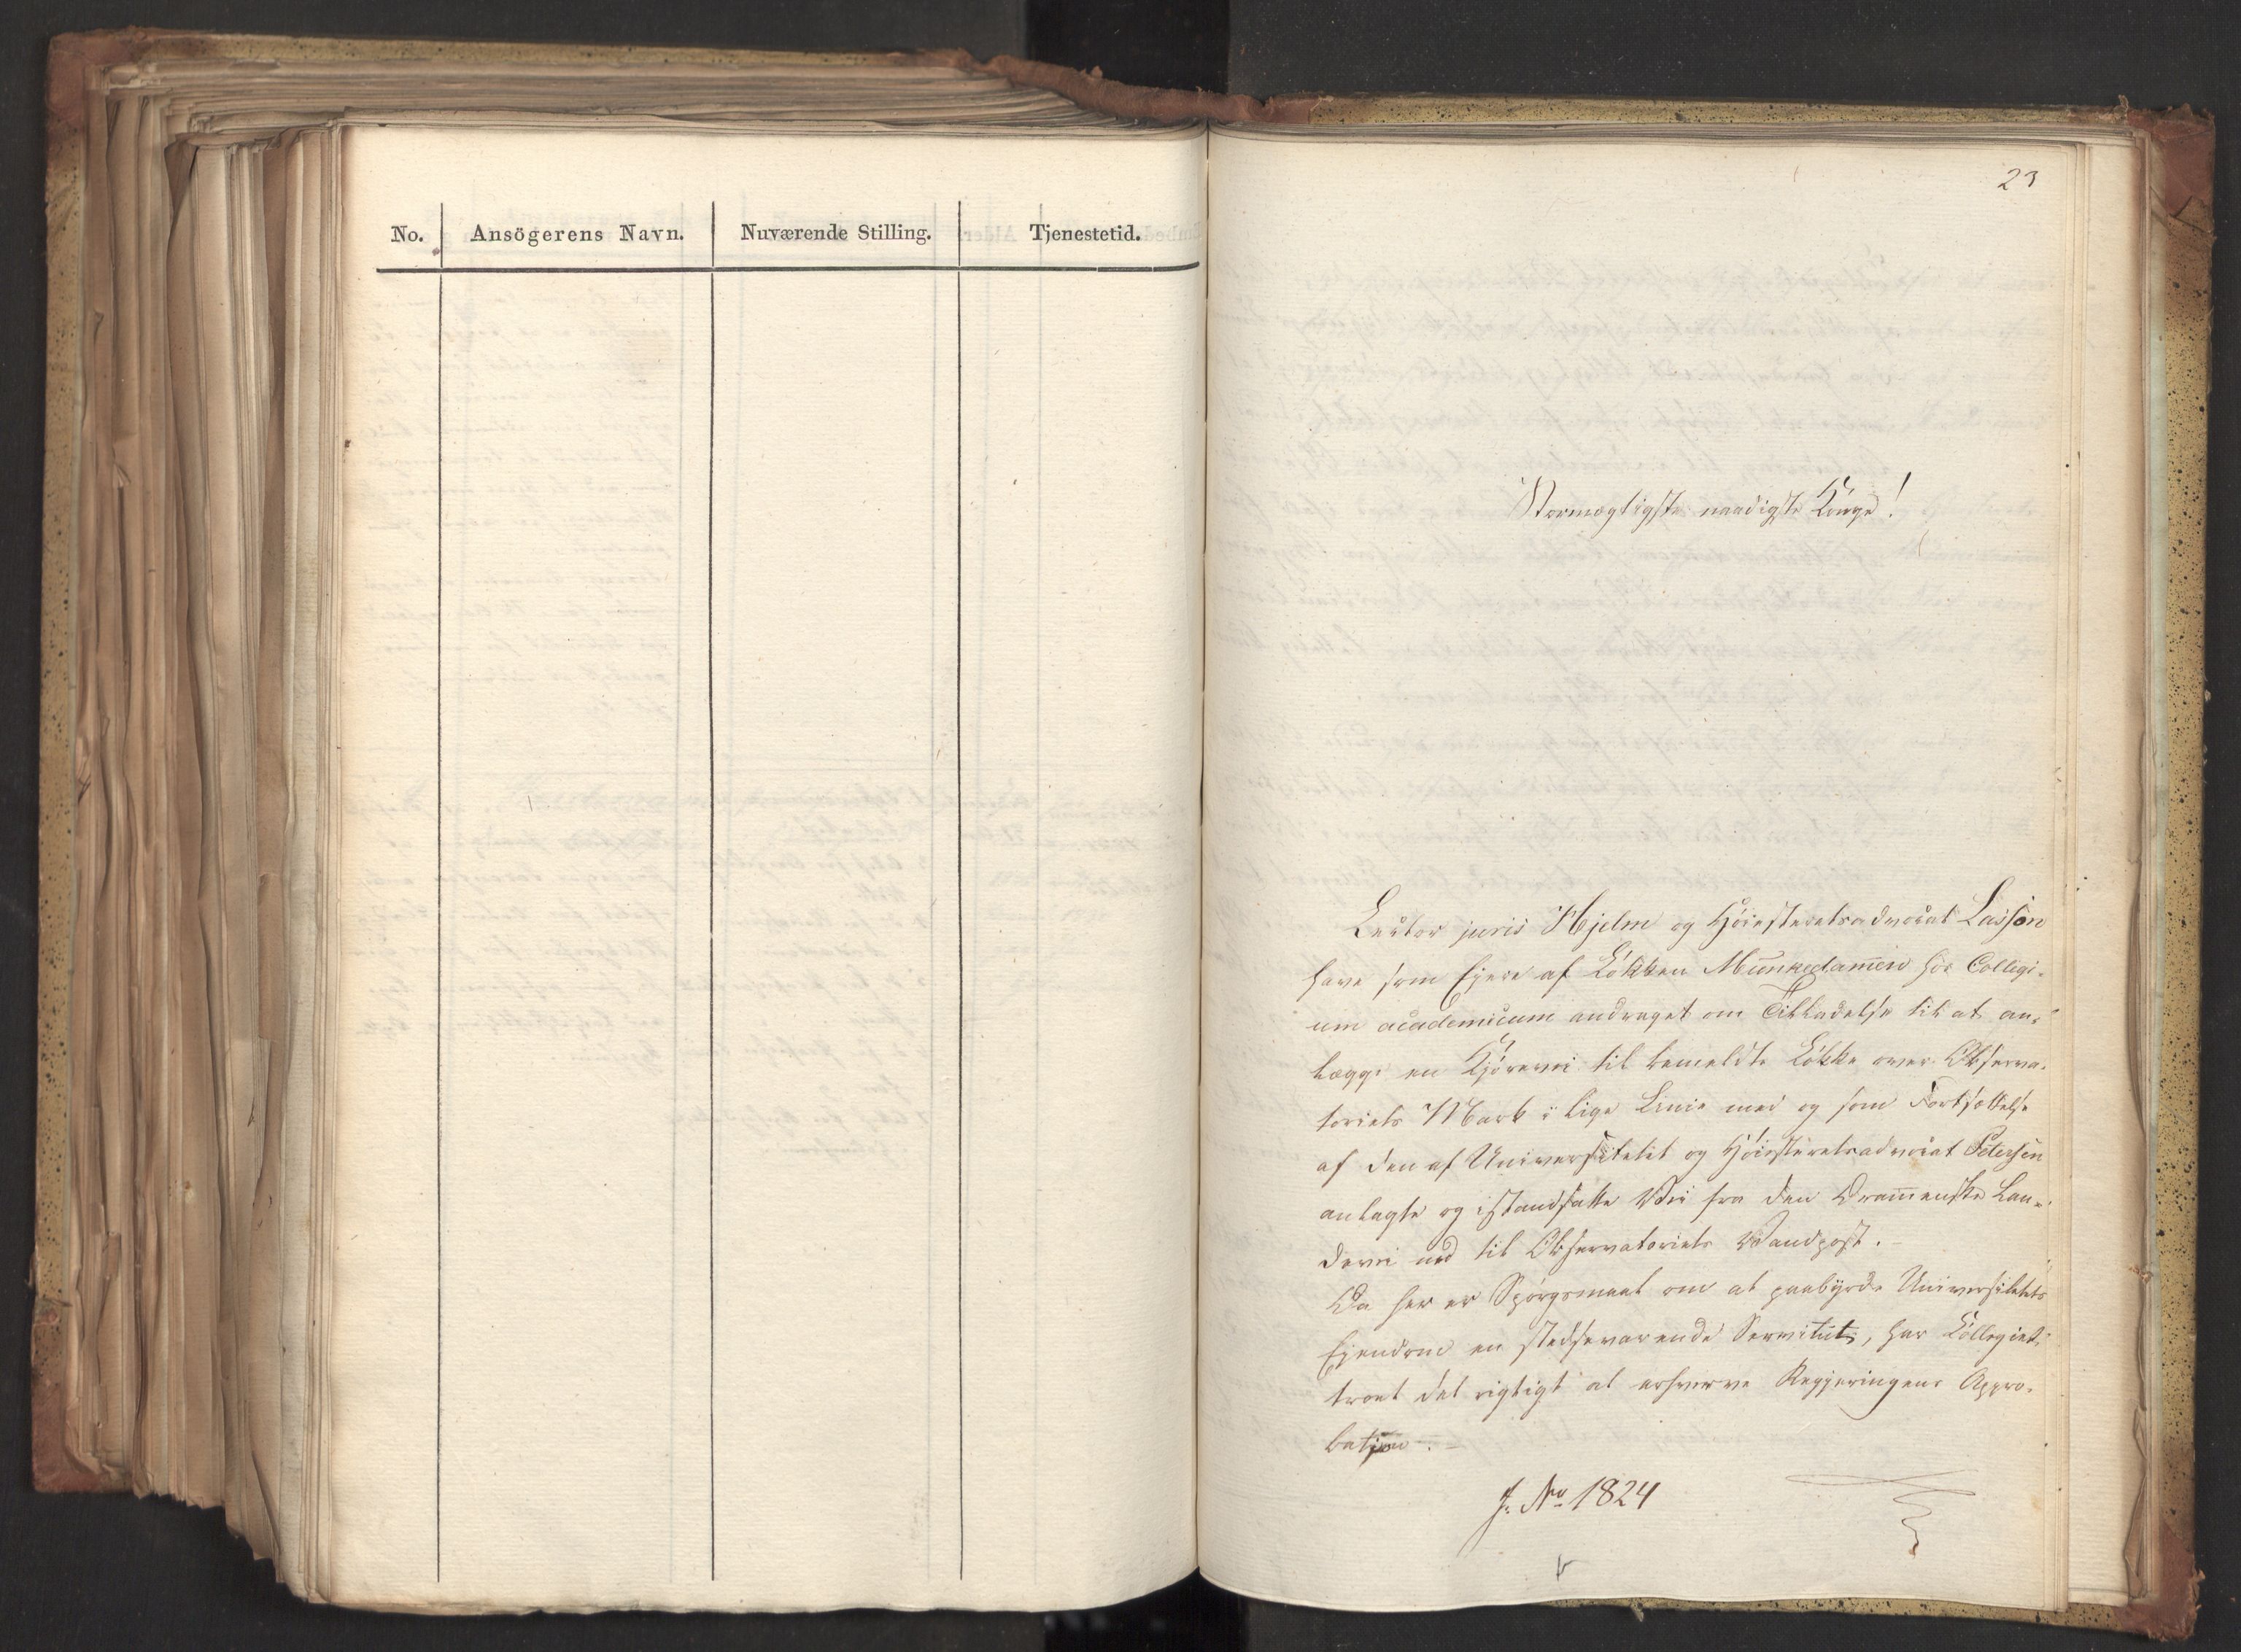 No. Ansögerens Navn. Nuværende Stilling. Tjenestetid.
23
Stormægtigste naadigste Konge!
Lector juris Hjelm og Høiesteretsadvocat Lasson
have som Ejere af Løkken Munkedamen hos Collegi-
um academicum andraget om Tilladelse til at an-
lægge en Kjørevei til bemeldte Løkke over Observa-
toriets Mark i lige Linie med og som Fortsættelse
af den af Universitetet og Høiesteretsadvocat Petersen
anlagte og istandsatte Vei fra den Dramenske Lan-
devei ned til Observatoriets Vandpost. -
Da her er Spørgsmaal om at paabyrde Universitetets
Ejendom en stedsevarende Servitut, har Collegiet
troet det rigtigt at erhverve Regjeringens Appro-
bation. -
J. No 1824